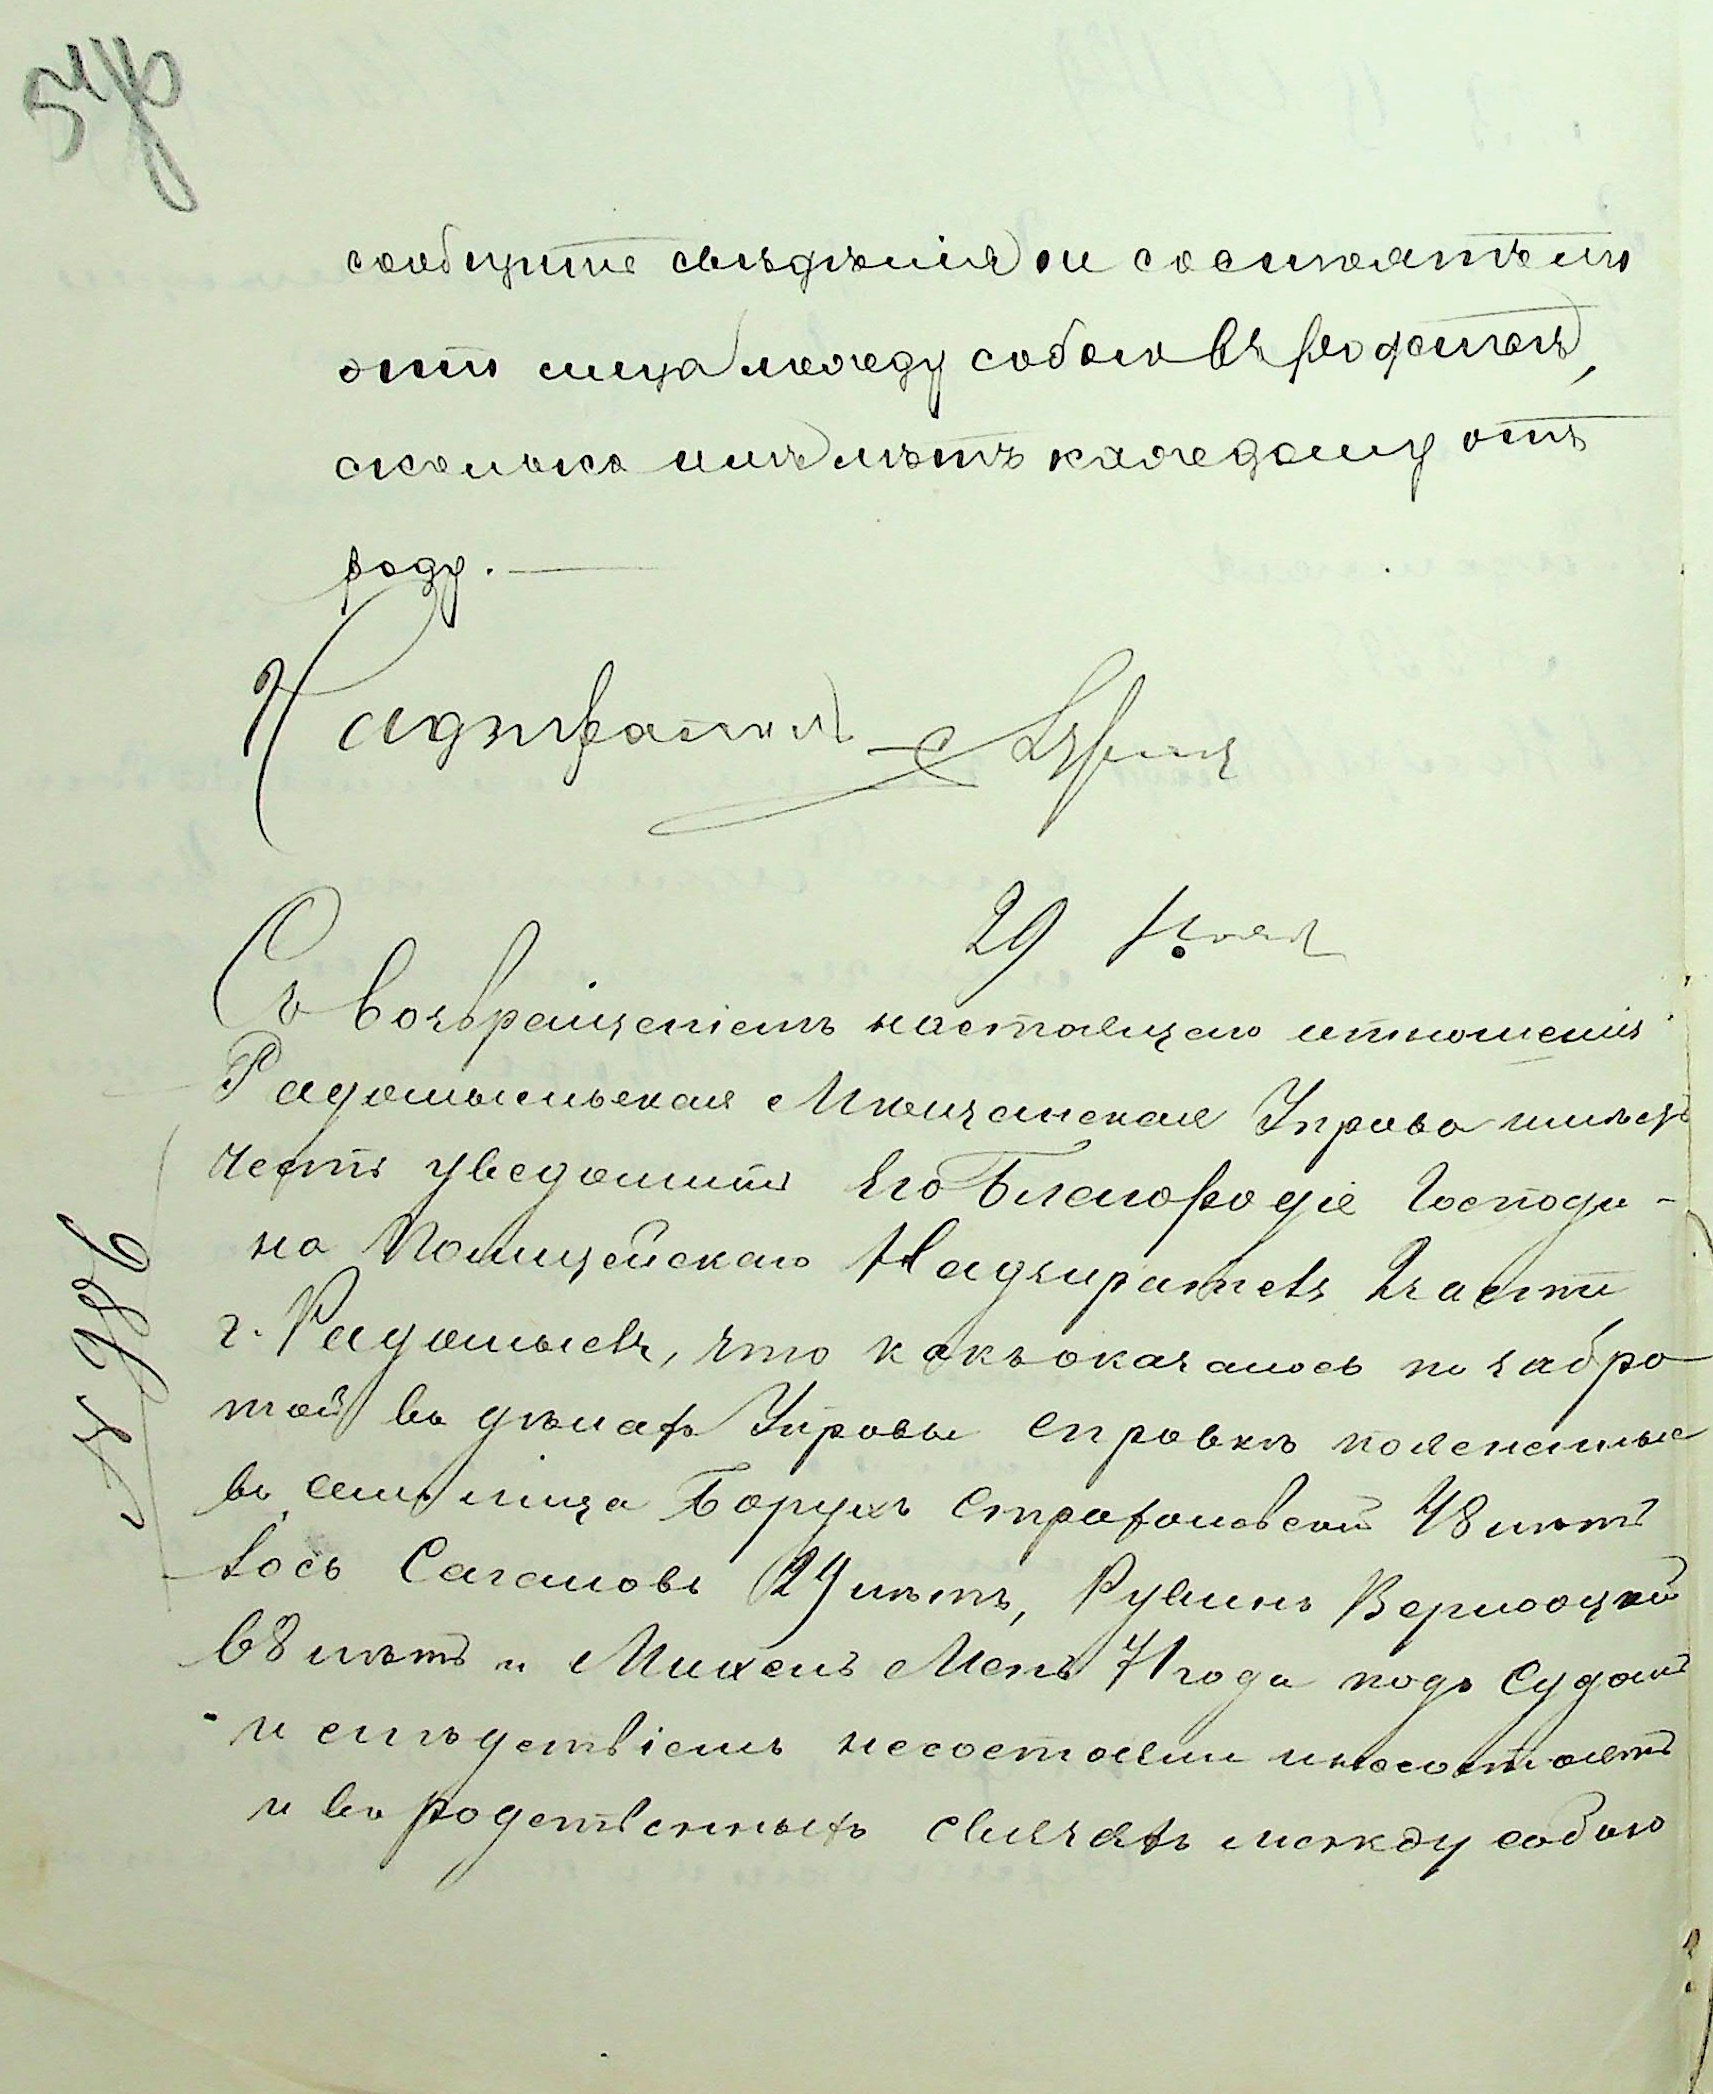 54 об
сообщить свѣдѣнія и состоятъ ли
эти лица между собою въ родствѣ,
сколько имъ лѣтъ каждому отъ
роду.
Надзиратель
29 Нояб
Съ возвращеніемъ настоящаго отношенія
Радомысльская Мѣщанская Управа имѣетъ
честь уведомить Его Благородіе Господи-
на Полицейскаго Надзирателя 2 части
г. Радомысля, что какъ оказалось по забра
той въ дѣлахъ Управы справкѣ поясненные
въ семъ лица Борухъ 48 лѣтъ
Іось Сагаловъ 29 лѣтъ, Рувинъ
68 лѣтъ и Михель Мень 71 года подъ судомъ
и слѣдствіемъ несостояли и несостоятъ
и въ родственныхъ связяхъ между собою
№ 986